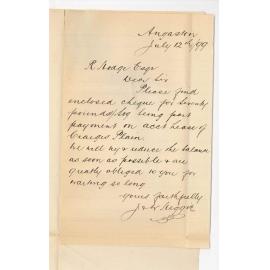 Angaston
July 12th /99
R Hodge Esqr
Dear Sir
Please find
enclosed cheque for seventy
pounds being part
payment on acct lease of
Plain
We will try & reduce the balance
as soon as possible & are
greatly obliged to you for
waiting so long
Yours faithfully
J &